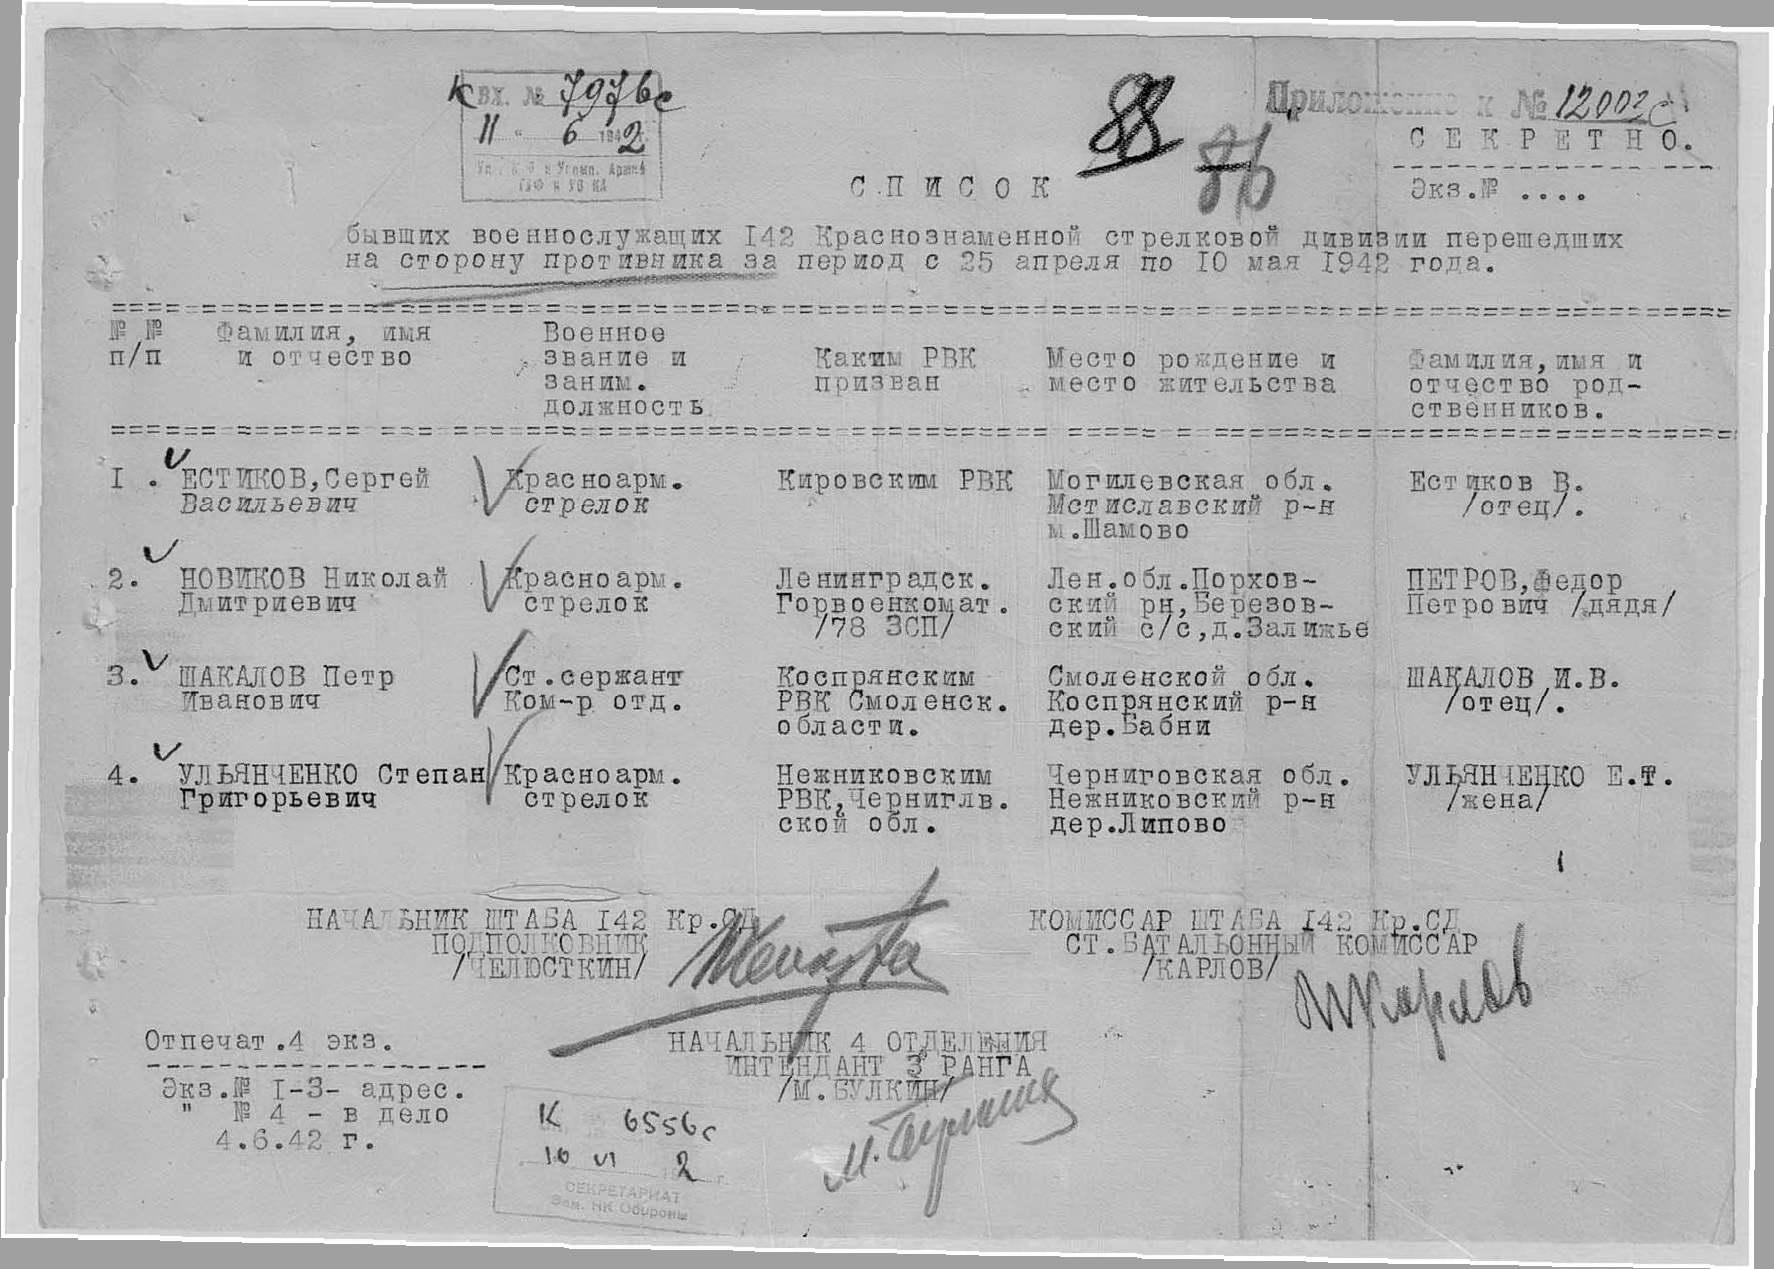 К ВХ. № 7976с
11 " 6 1942 г.
Приложение к № 12002с
88
86
СЕКРЕТНО.
Экз.№ ....
СПИСОК
бывших военнослужащих I42 Краснознаменной стрелковой дивизии перешедших
на сторону противника за период с 25 апреля по IO мая I942 года.
№ № Фамилия, имя Военное
п/п и отчество звание и Каким РВК Место рождение и Фамилия,имя и
заним. призван место жительства отчество род-
должность ственников.
I. ЕСТИКОВ,Сергей Красноарм. Кировским РВК Могилевская обл. Естиков В.
Васильевич стрелок Мстиславский р-н /отец/.
м.Шамово
2. НОВИКОВ Николай Красноарм. Ленинградск. Лен.обл.Порхов- ПЕТРОВ,Федор
Дмитриевич стрелок Горвоенкомат. ский рн,Березов- Петрович /дядя/
/78 ЗСП/ ский с/с,д.Залижье
3. ШАКАЛОВ Петр Ст.сержант Коспрянским Смоленской обл. ШАКАЛОВ И.В.
Иванович Ком-р отд. РВК Смоленск. Коспрянский р-н /отец/.
области. дер.Бабни
4. УЛЬЯНЧЕНКО Степан Красноарм. Нежниковским Черниговская обл. УЛЬЯНЧЕНКО Е.Т.
Григорьевич стрелок РВК,Черниглв. Нежниковский р-н /жена/
ской обл. дер.Липово
НАЧАЛЬНИК ШТАБА I42 Кр.СД КОМИССАР ШТАБА I42 Кр.СД
ПОДПОЛКОВНИК СТ.БАТАЛЬОННЫЙ КОМИССАР
/ЧЕЛЮСТКИН/ /КАРЛОВ/
Отпечат.4 экз. НАЧАЛЬНИК 4 ОТДЕЛЕНИЯ
ИНТЕНДАНТ 3 РАНГА
Экз.№ I-3- адрес. /М.БУЛКИН/
" № 4 - в дело
4.6.42 г.
К 6556с
10 VI 2 г.
СЕКРЕТАРИАТ
Зам. НК Обороны